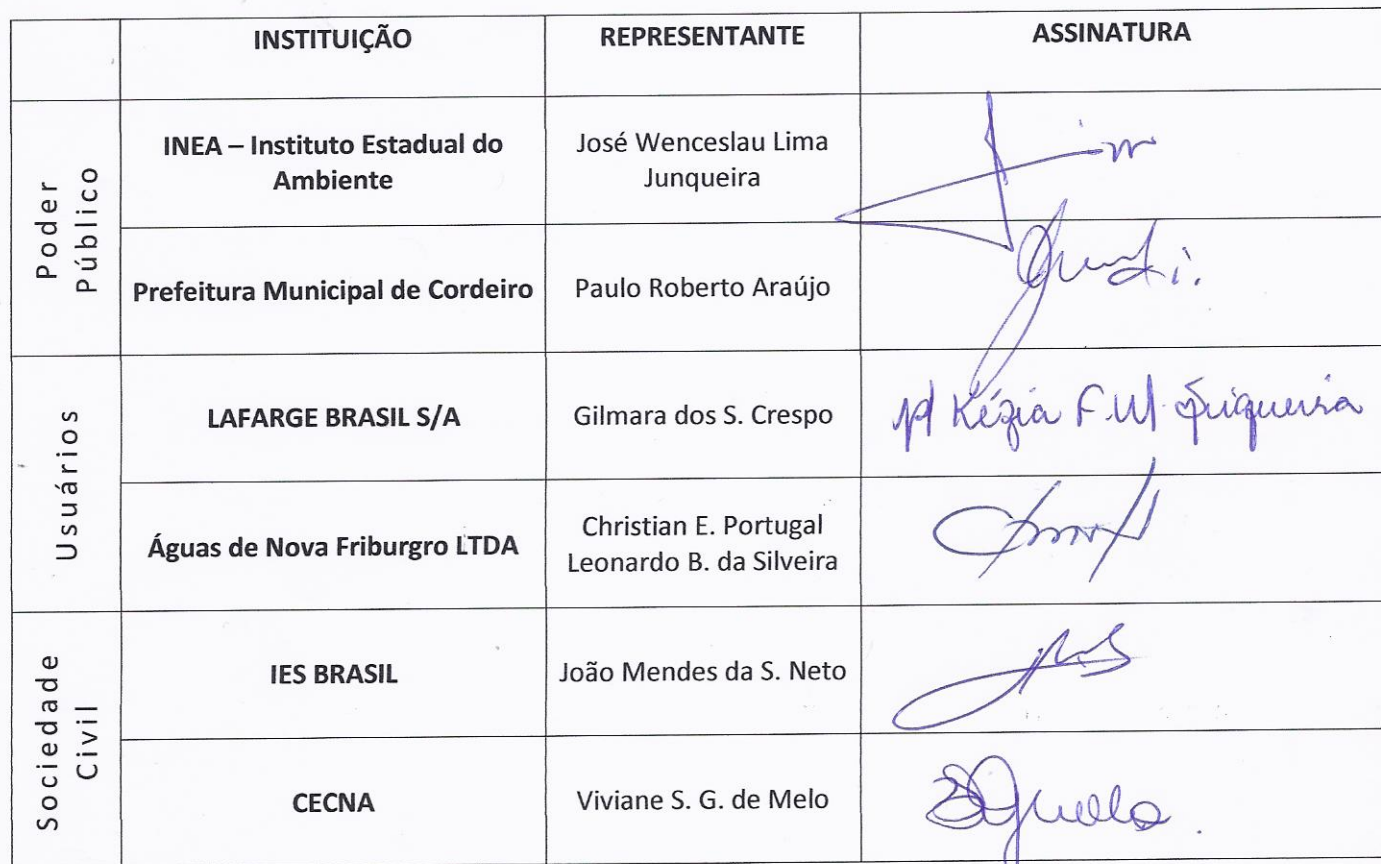 INSTITUIÇÃO REPRESENTANTE ASSINATURA
Poder
Público
INEA – Instituto Estadual do
Ambiente
José Wenceslau Lima
Junqueira
Prefeitura Municipal de Cordeiro
Paulo Roberto Araújo
Usuários
LAFARGE BRASIL S/A
Gilmara dos S. Crespo
p/ Kézia F. W. Siqueira
Águas de Nova Friburgro LTDA
Christian E. Portugal
Leonardo B. da Silveira
Sociedade
Civil
IES BRASIL
João Mendes da S. Neto
CECNA
Viviane S. G. de Melo